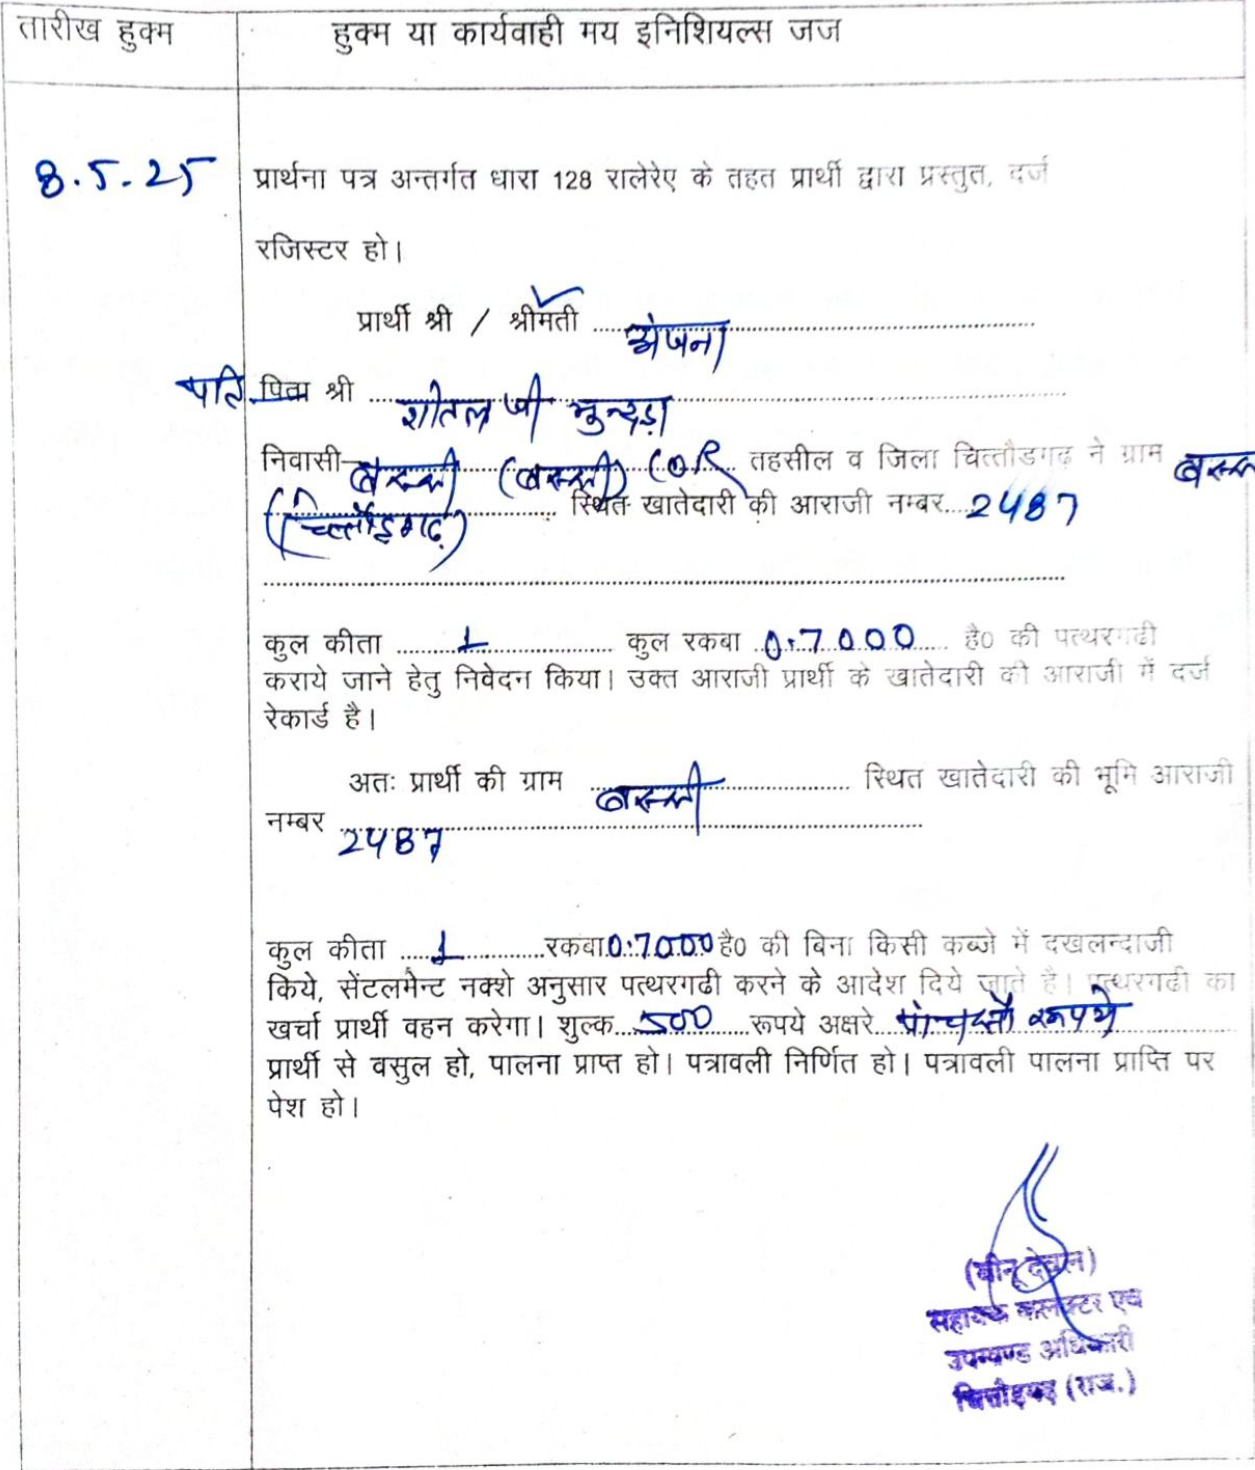 तारीख हुक्म
हुक्म या कार्यवाही मय इनिशियल्स जज
8.5.25
प्रार्थना पत्र अन्तर्गत धारा 128 रालेरेए के तहत प्रार्थी द्वारा प्रस्तुत, दर्ज
रजिस्टर हो।
प्रार्थी श्री / श्रीमती ✓ अंजना
पति पिता श्री शीतल जी मुन्दड़ा
निवासी बस्सी (बस्सी) तहसील व जिला चित्तौडगढ़ ने ग्राम बस्सी
(चित्तौड़गढ़) स्थित खातेदारी की आराजी नम्बर 2487
कुल कीता 1 कुल रकबा 0.7000 है0 की पत्थरगढी
कराये जाने हेतु निवेदन किया। उक्त आराजी प्रार्थी के खातेदारी की आराजी में दर्ज
रेकार्ड है।
अतः प्रार्थी की ग्राम बस्सी स्थित खातेदारी की भूमि आराजी
नम्बर 2487
कुल कीता 1 रकबा 0.7000 है0 की बिना किसी कब्जे में दखलन्दाजी
किये, सेंटलमेन्ट नक्शे अनुसार पत्थरगढी करने के आदेश दिये जाते है। पत्थरगढी का
खर्चा प्रार्थी वहन करेगा। शुल्क 500 रूपये अक्षरे पांच सौ रूपये
प्रार्थी से वसुल हो, पालना प्राप्त हो। पत्रावली निर्णित हो। पत्रावली पालना प्राप्ति पर
पेश हो।
(बीनू देवल)
सहायक कलक्टर एवं
उपखण्ड अधिकारी
चित्तौड़गढ़ (राज.)